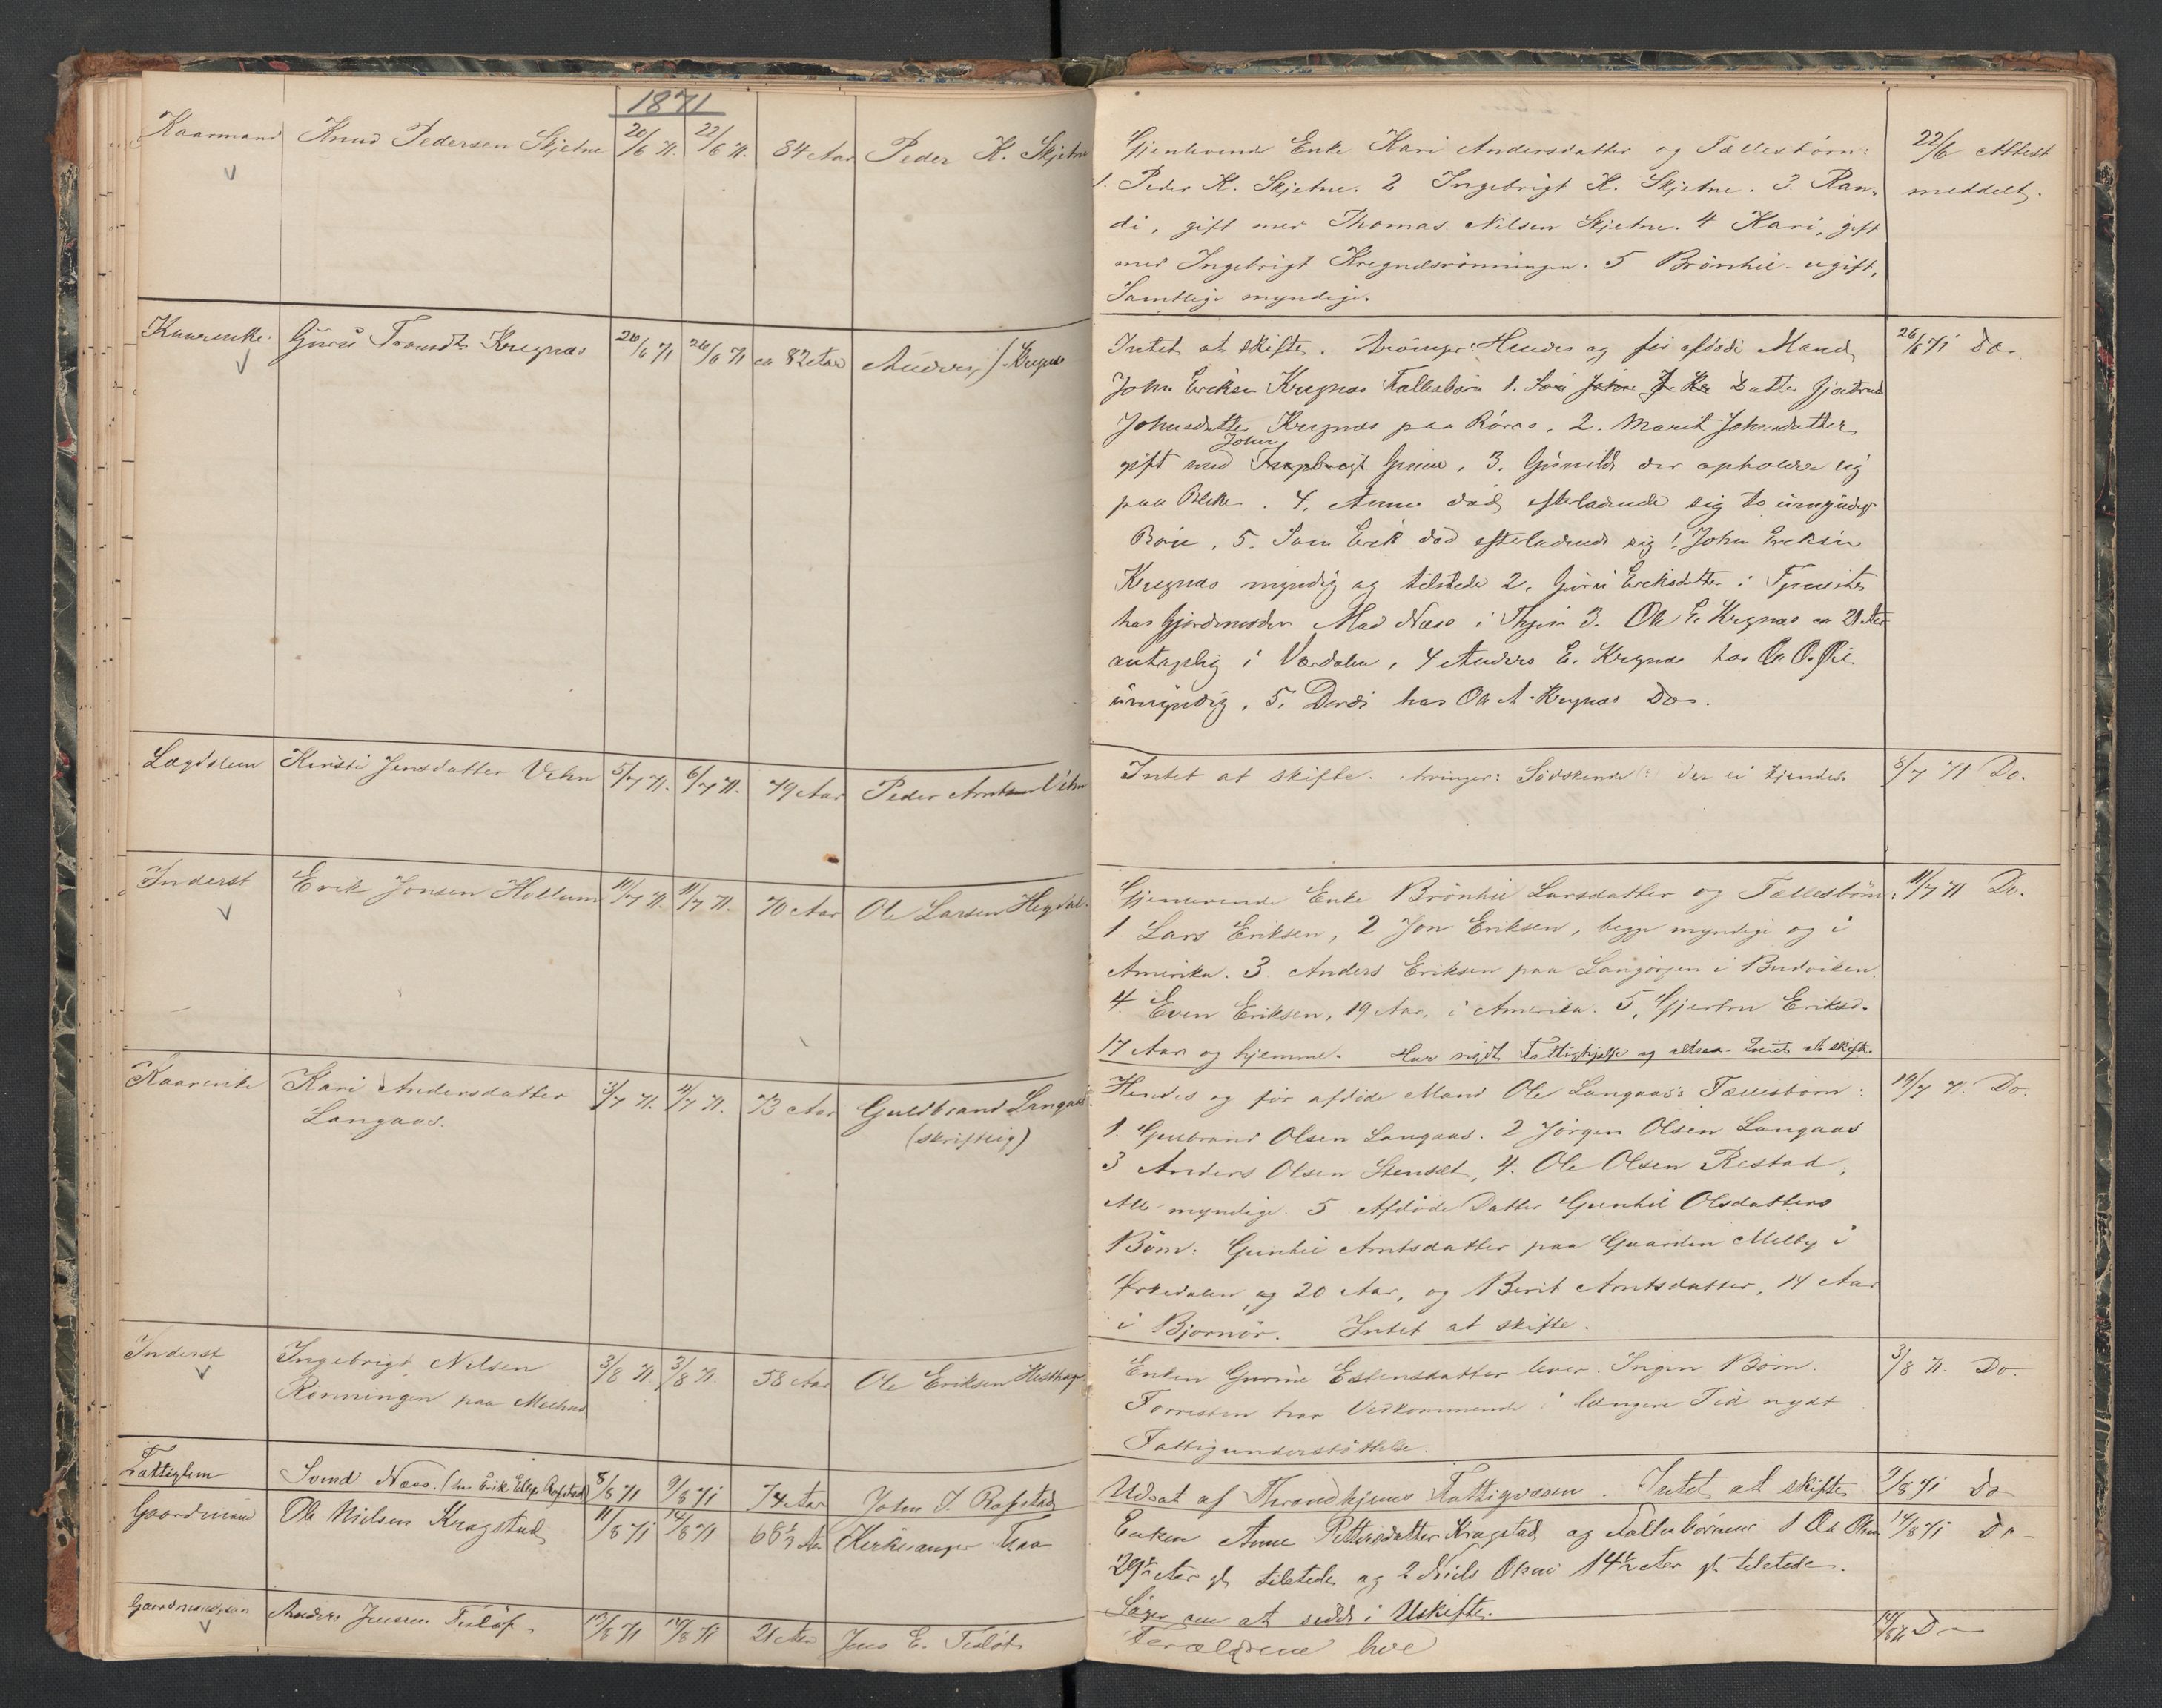 1871
Kaarmand Knud Pedersen Skjetne 20/6 71. 22/6 71. 84 Aar Peder K. Skjetne
Gjenlevende Enke Kari Andersdatter og Fællesbörn: 22/6 Attest
1. Peder K. Skjetne. 2 Ingebrigt K. Skjetne. 3. Ran- meddelt.
di, gift med Thomas Nilsen Skjetne. 4 Kari, gift
med Ingebrigt Kregnæsrönningen. 5 Brönhil ugift,
Samtlige myndige.
Kaarenke Guru Kregnæs 26/6 71 26/6 71 ca 82 Aar Anders J. Kregnæs
Intet at skifte. Arvinger: Hendes og før afdøde Mand 26/6 71 Do.
John Ericksen Kregnæs Fællesbörn 1. Datter Gjertrud
Johnsdatter Kregnæs paa Röros, 2. Marit Johnsdatter
John
gift med Ingebrigt, 3. Gunild der opholder sig
paa, 4. Anne död efterladende sig to umyndige
Börn, 5. Sön Erik död efterladende sig 1. John Ericksen
Kregnæs myndig og tilstede 2. Guru Ericksdatter i Tjeneste
hos Gjordemoder Mad Næss i 3. Ole E. Kregnæs ca 21 Aar
antagelig i Værdalen, 4 Anders E. Kregnæs hos Ole O.
umyndig, 5. Dordi hos Ole A. Kregnæs Do.
Lægdslem Kirsti Jensdatter Vehn 5/7 71. 6/7 71. 79 Aar Peder Arntsen Vehn
Intet at skifte. Arvinger: Södskende der ei kjendes 8/7 71 Do.
Inderst Erik Jonsen Hollum 10/7 71. 11/7 71. 70 Aar Ole Larsen Hegdal.
Gjenlevende Enke Brönhil Larsdatter og Fællesbörn: 11/7 71 Do.
1 Lars Eriksen, 2 Jon Eriksen, begge myndige og i
Amerika. 3. Anders Eriksen paa Langörgen i Budviken.
4. Even Eriksen, 19 Aar, i Amerika. 5, Gjertru Eriksd.
17 Aar og hjemme. Har nydt Fattighjelp og altsaa Intet at skifte.
Kaarenke Kari Andersdatter 3/7 71. 4/7 71. 73 Aar Guldbrand Langaas
Langaas. (skriftlig)
Hendes og før afdöde Mand Ole Langaas's Fællesbörn: 19/7 71. Do.
1. Gulbrand Olsen Langaas. 2 Jörgen Olsen Langaas
3 Anders Olsen Stensæt, 4. Ole Olsen Restad,
Alle myndige. 5 Afdöde Datter Gunhil Olsdatters
Börn: Gunhil Arntsdatter paa Gaarden Melby i
Orkedalen, og 20 Aar, og Berit Arntsdatter, 14 Aar
i Bjørnör. Intet at skifte.
Inderst Ingebrigt Nilsen 3/8 71. 3/8 71. 58 Aar Ole Eriksen
Rønningen paa Melhus
Enken Gurine Estensdatter lever. Ingen Börn. 3/8 71. Do.
Forresten har Vedkommende i længere Tid nydt
Fattigunderstöttelse.
Fattiglem Svend Næss. (hos Erik Rofstad) 8/8 71 9/8 71 74 Aar John J. Rofstad
Udsat af Throndhjems Fattigvæsen. Intet at skifte 9/8 71 Do
Gaardmand Ole Nielsen Kragstad 11/8 71 14/8 71 68½ Aar Kirkesanger
Enken Anne Pettersdatter Kragstad og Fællesbörnene 1 Ole Olsen 14/8 71 Do
29½ Aar gl tilstede og 2 Niels Olsen 14½ Aar gl tilstede.
Søger om at sidde i Uskifte.
Gaardmandssøn Anders Jensen Teslöf 13/8 71 14/8 71 21 Aar Jens E. Teslöf
Forældrene leve 14/8 71 Do